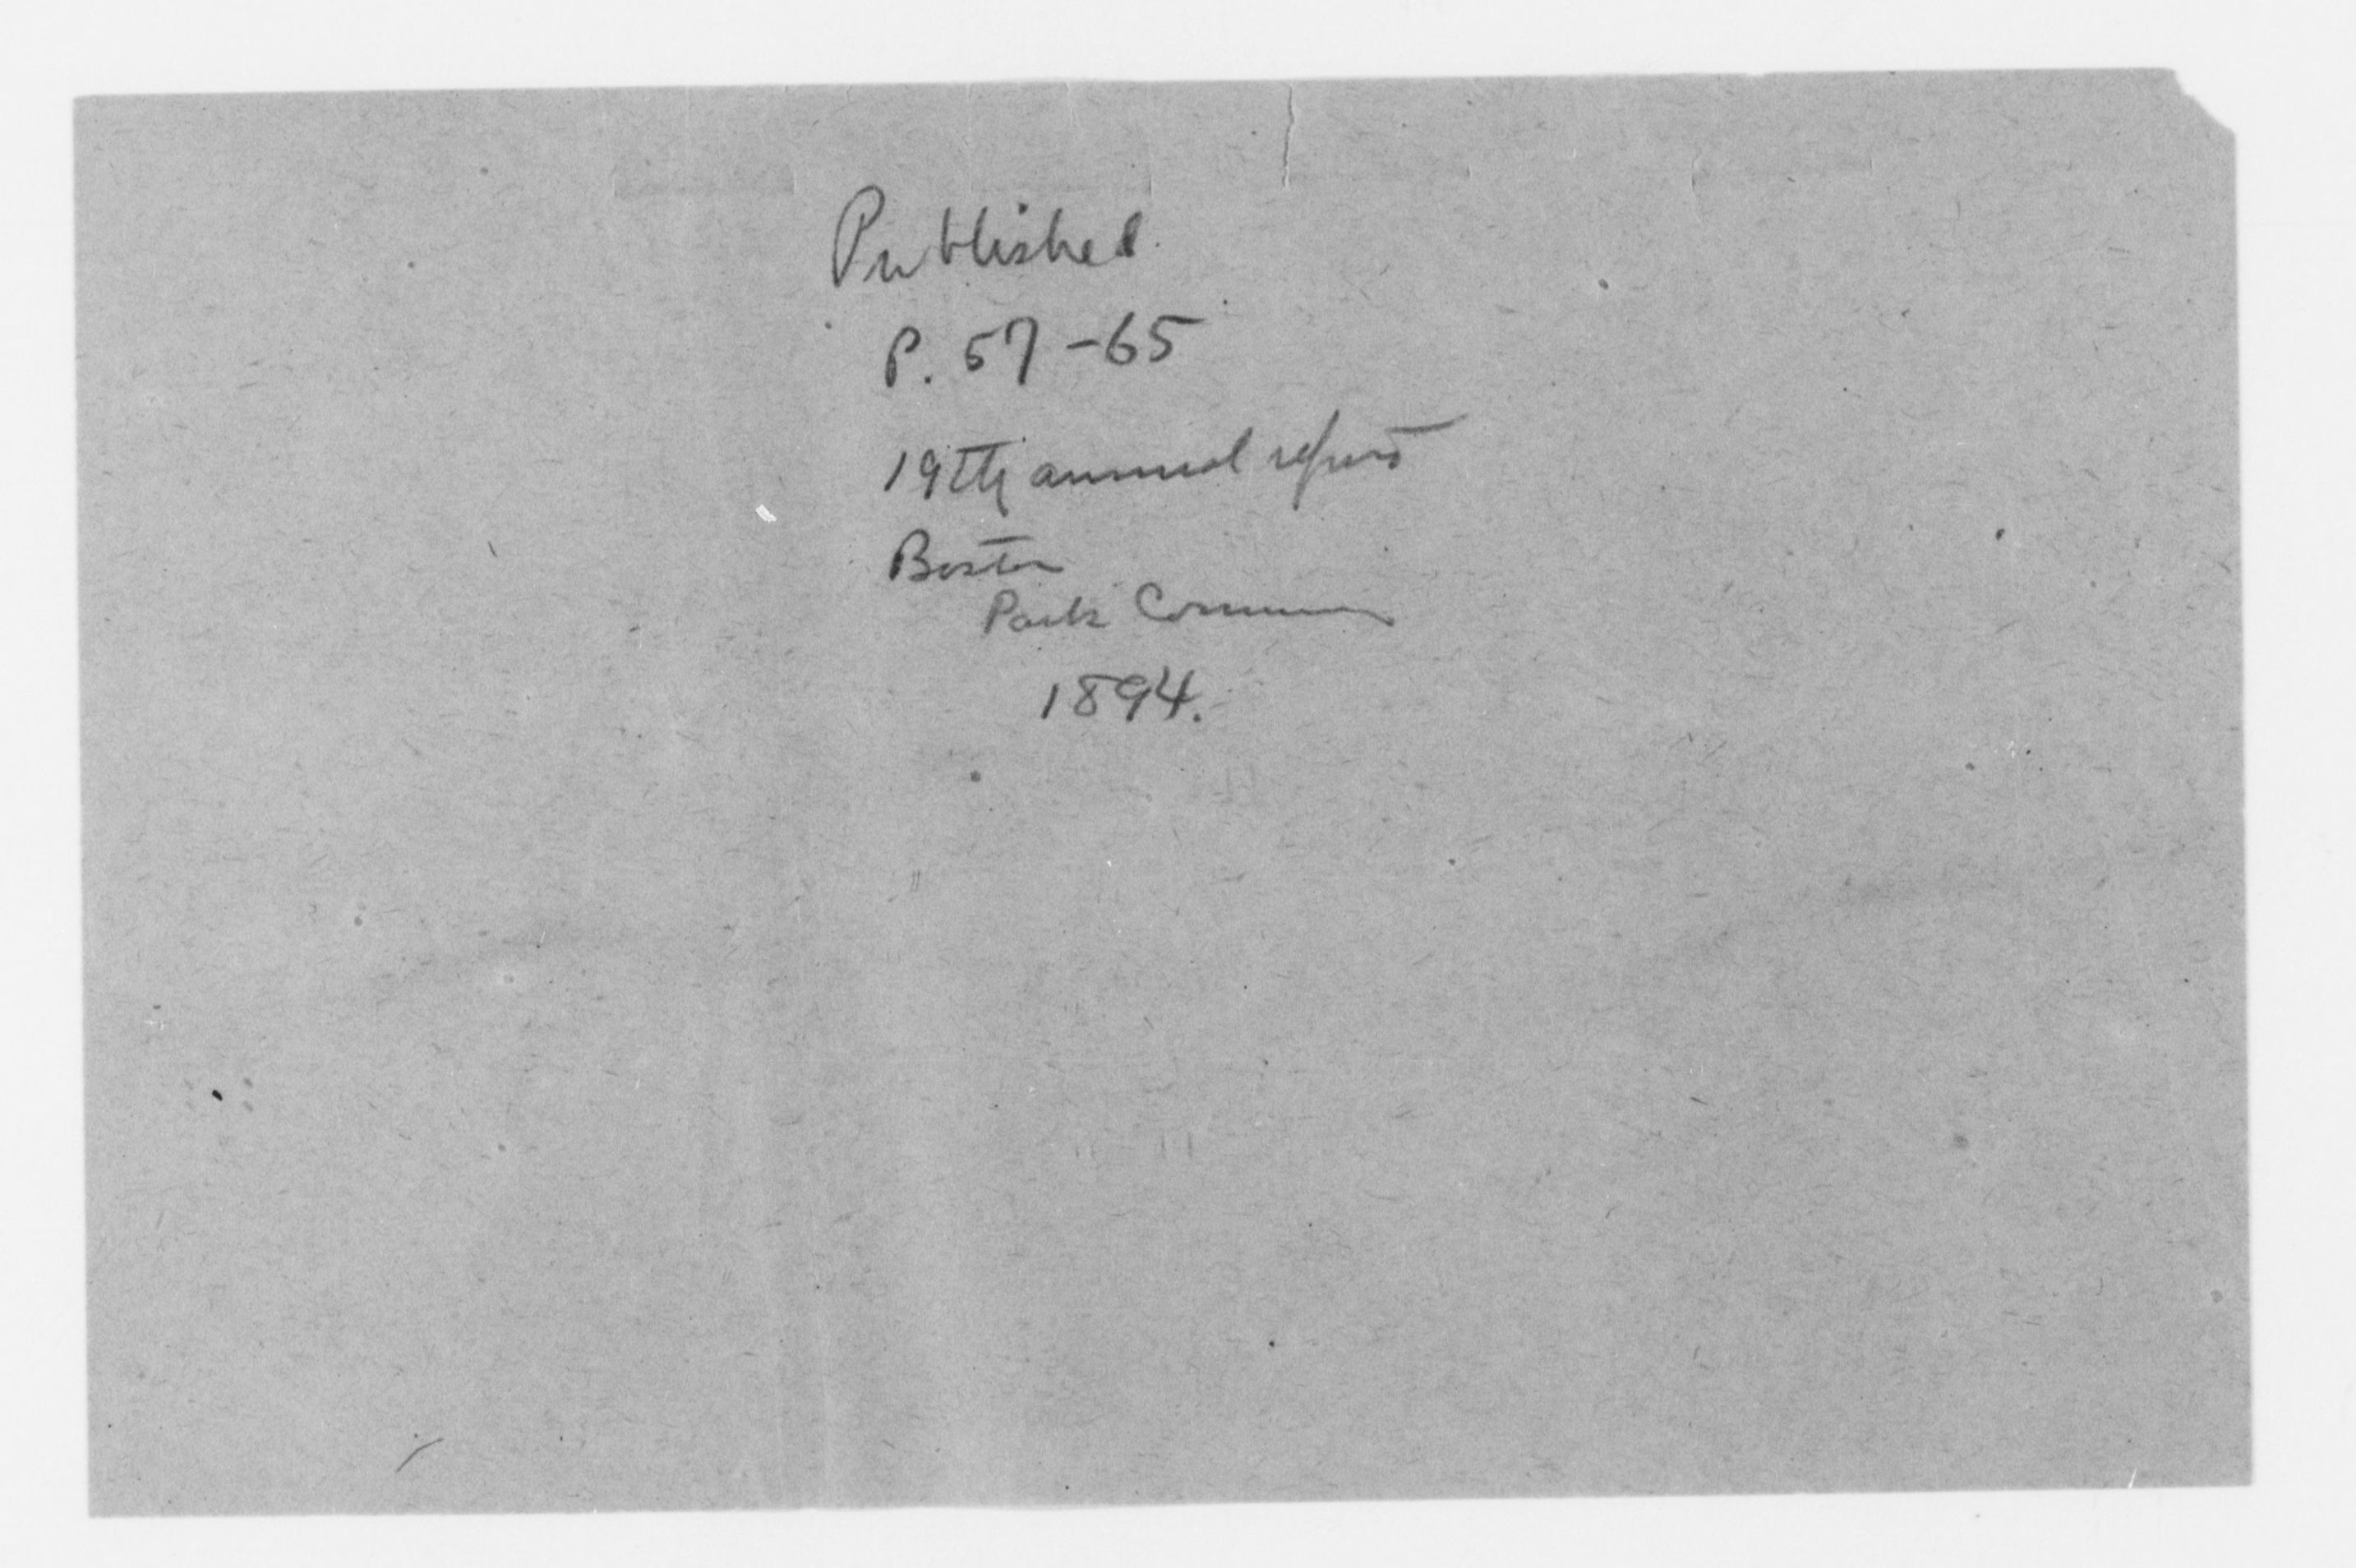 Published.
P. 57-65
19th annual report
Boston
Park Comm
1894.